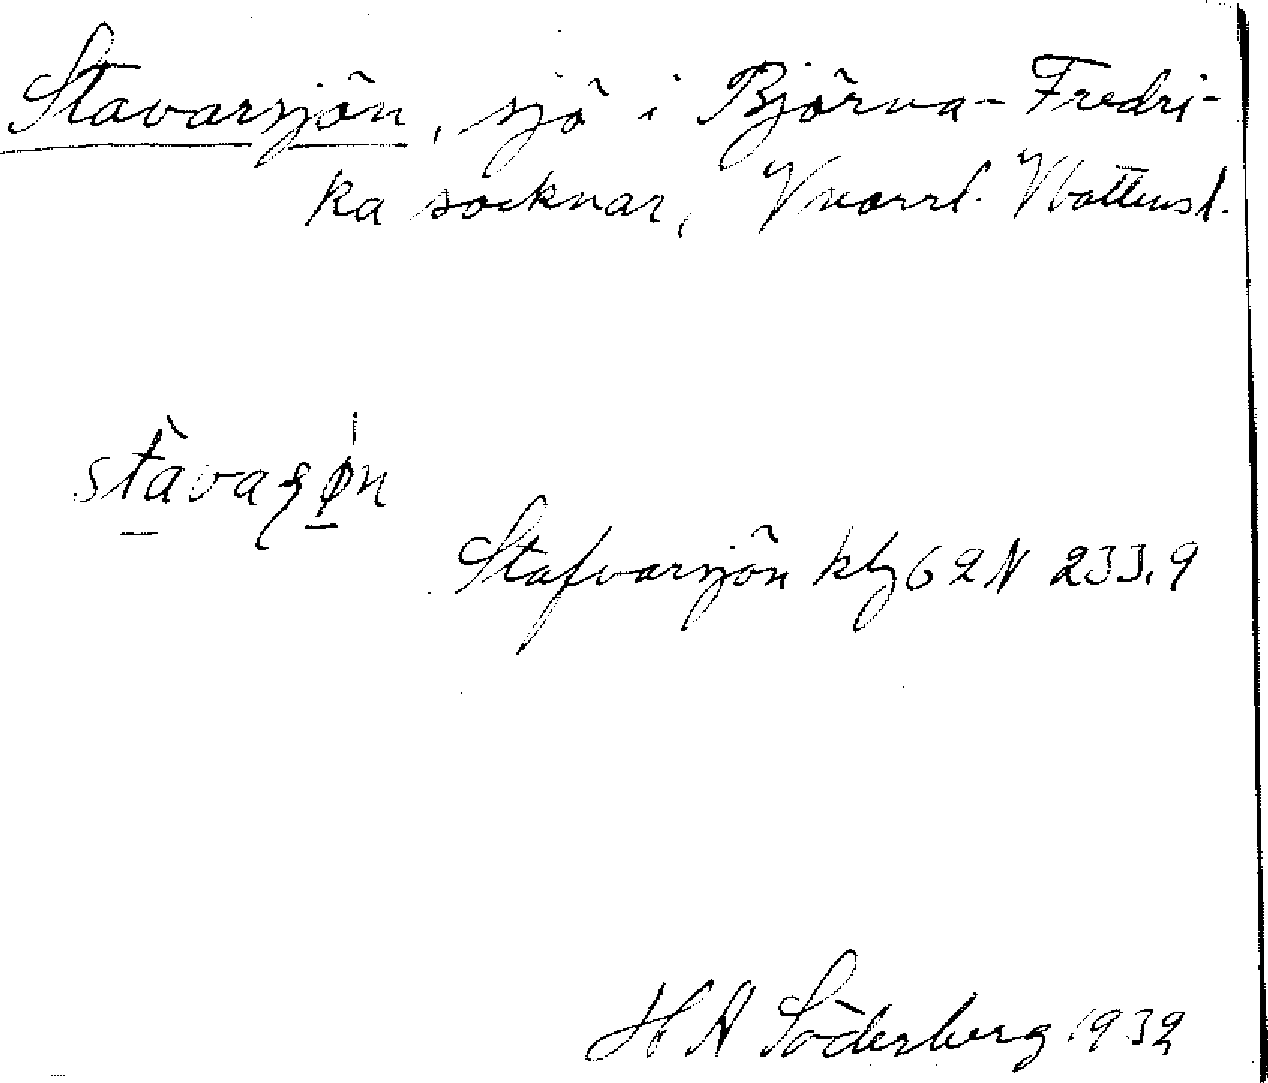 Stavarsjön, sjö i Björna- Fredri-
ka socknar, Vnorrl. Vbottensl.
stàvaʂø̍n
Stafvarsjön kbg 62 N 233.9
H A Söderberg 1932